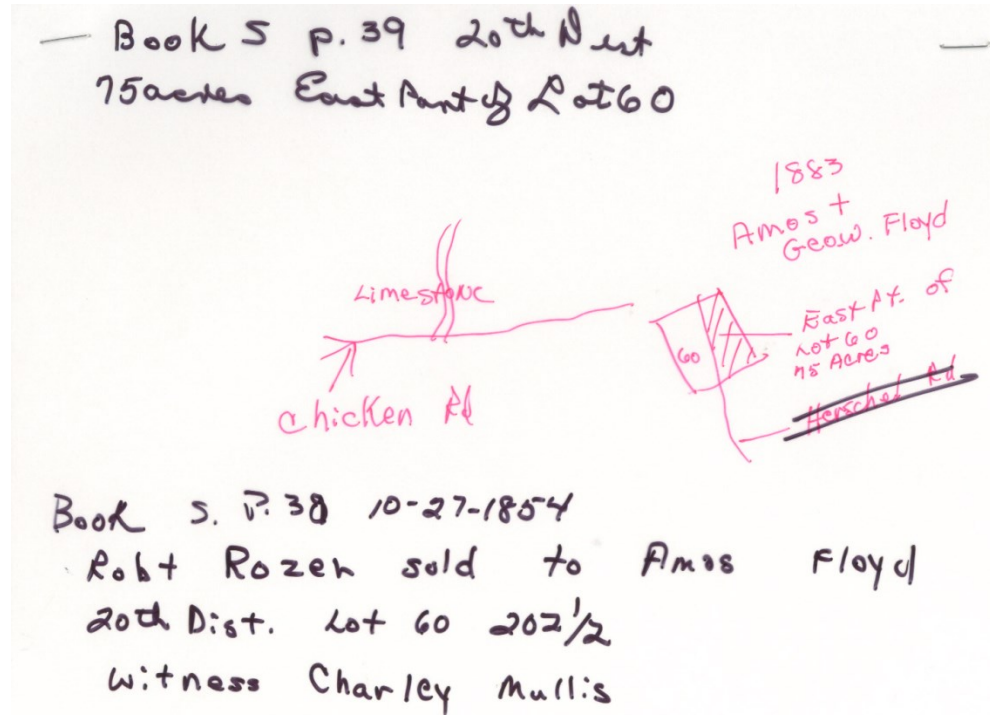 Book S p. 39 20th Dist
75 acres East Part of Lot 60
1883
Amos +
Geo.W. Floyd
Limestone
East Pt. of
Lot 60
75 Acres
60
Herschel Rd
Chicken Rd
Book S. P. 38 10-27-1854
Robt Rozen sold to Amos Floyd
20th Dist. Lot 60 202 1/2
Witness Charley Mullis